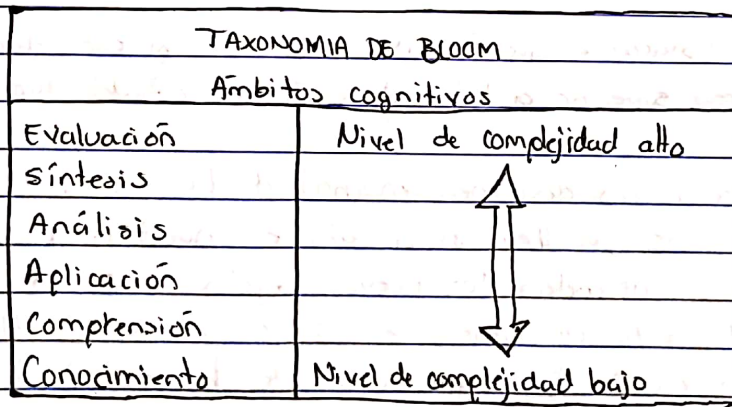 TAXONOMIA DE BLOOM
Ámbitos cognitivos
Evaluación Nivel de complejidad alto
síntesis
Análisis
Aplicación
Comprensión
Conocimiento Nivel de complejidad bajo